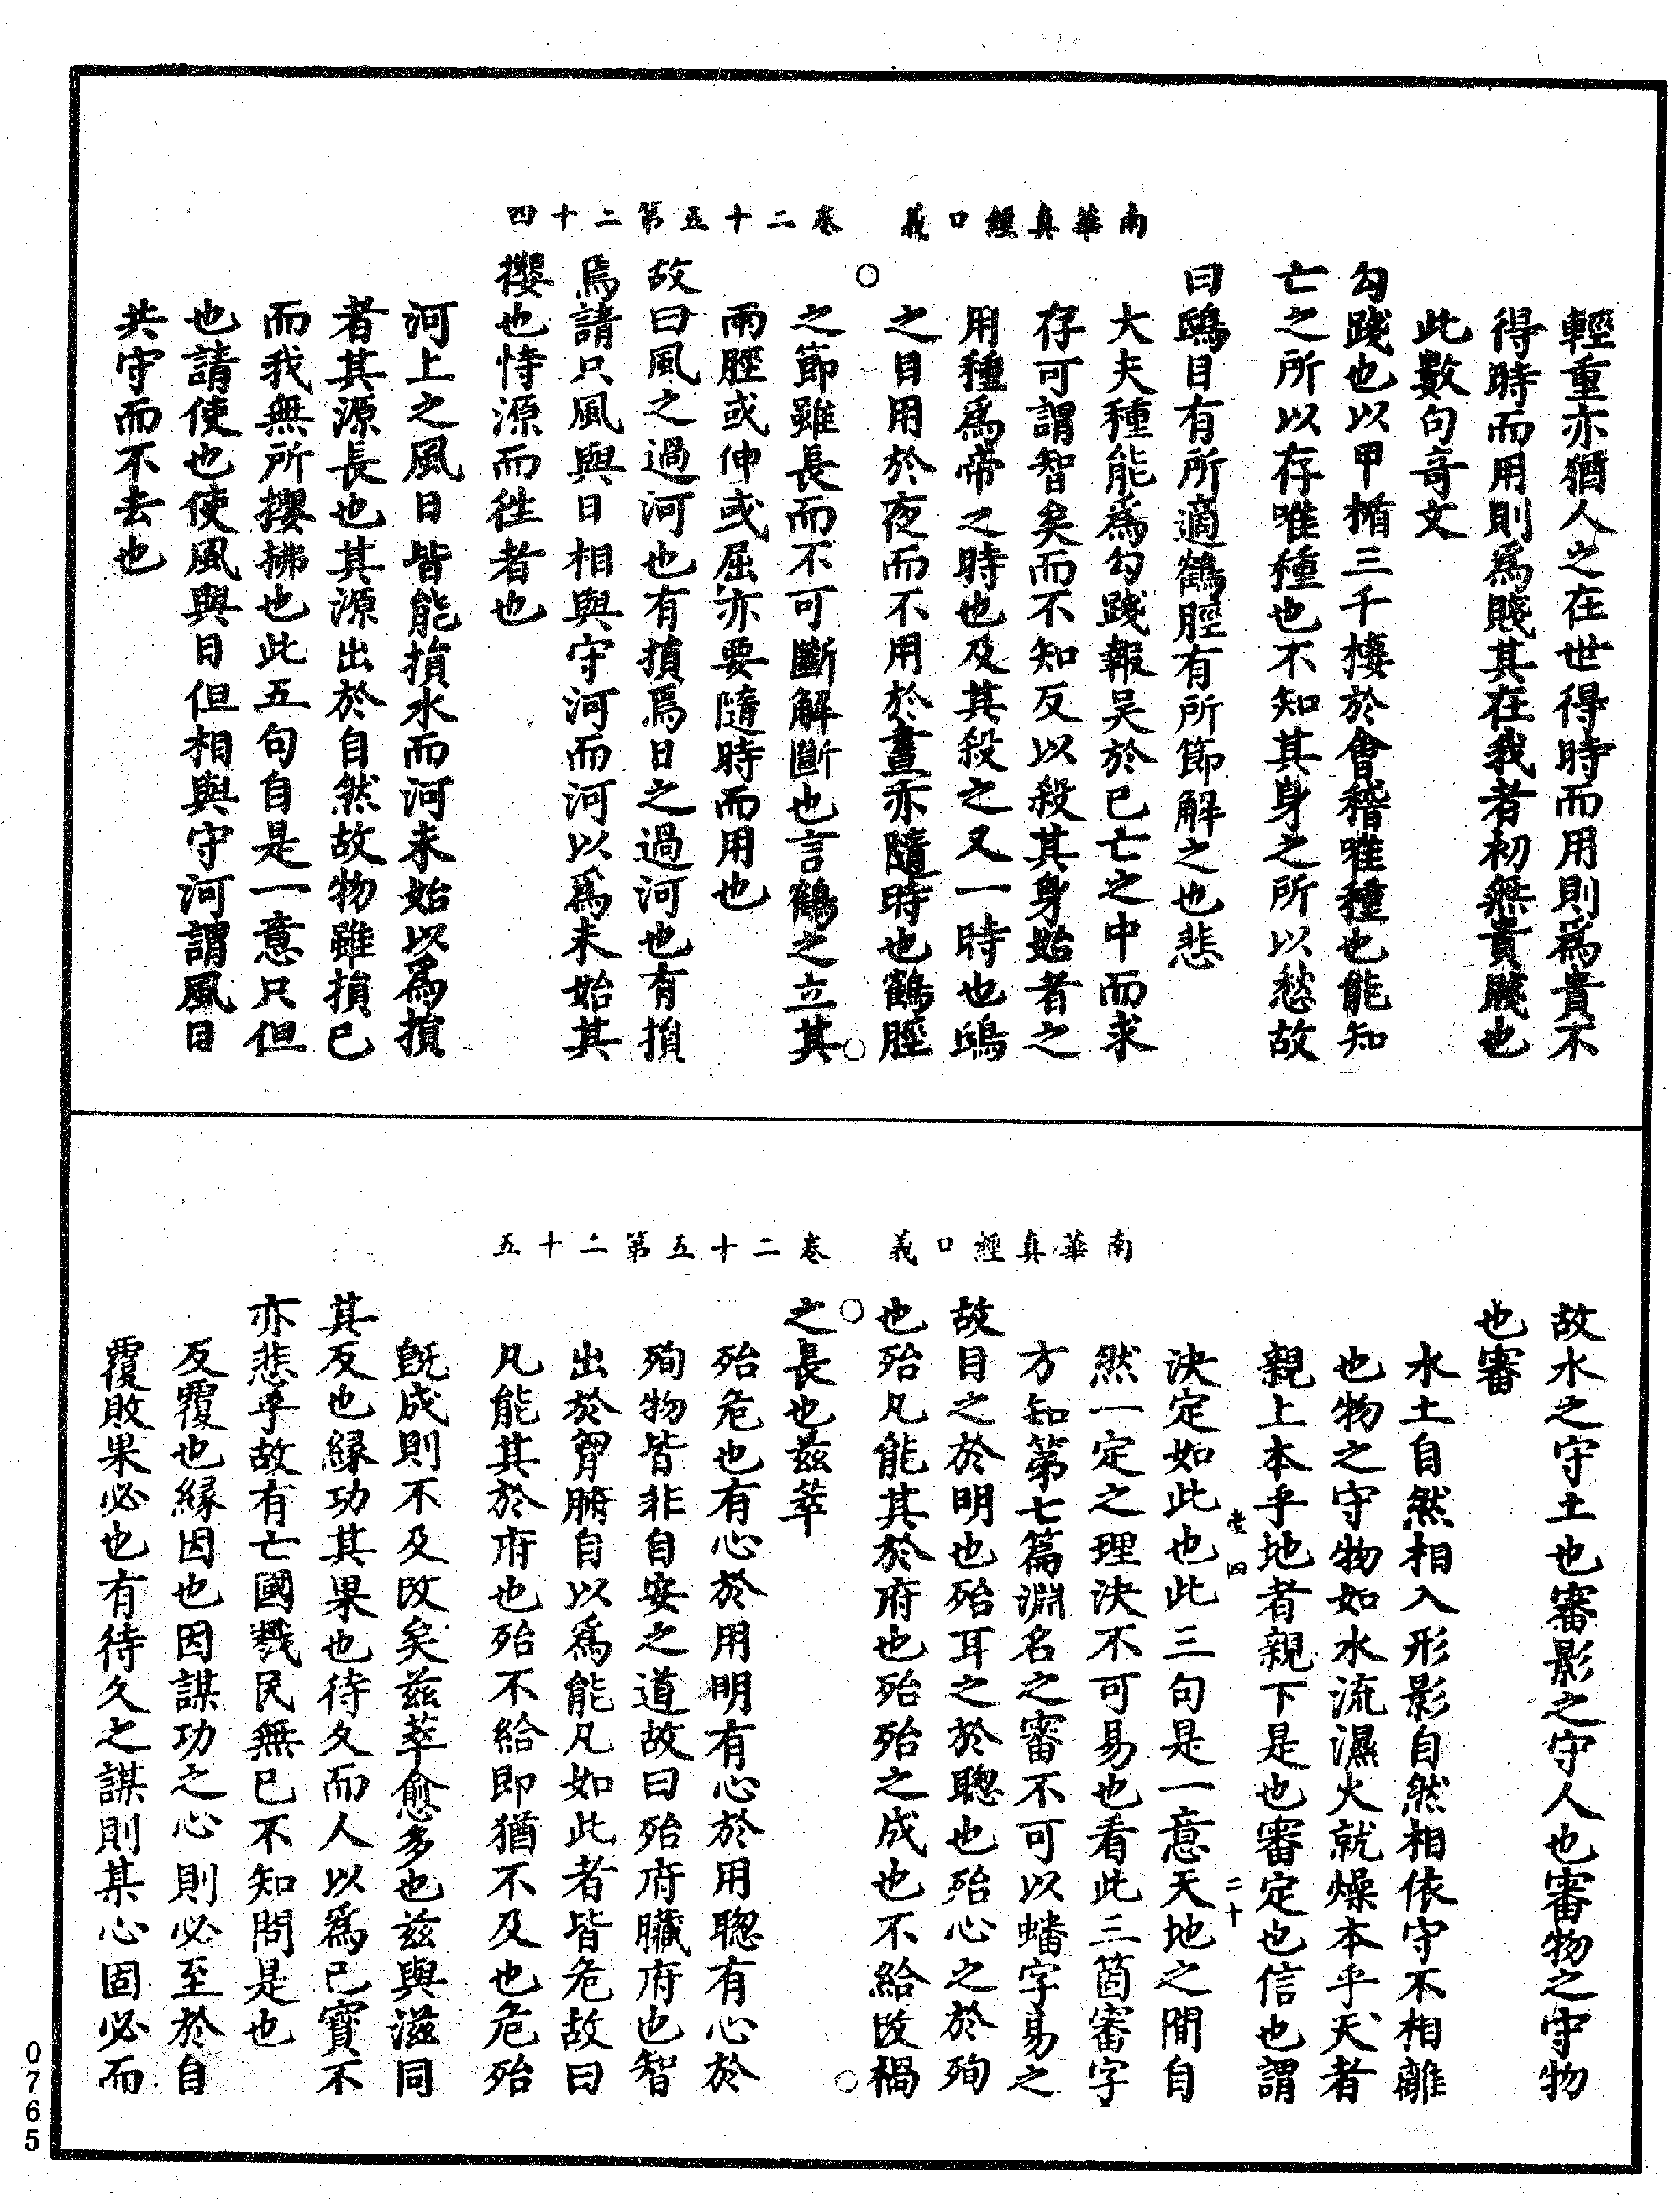 南華真經口義　卷二十五第二十四
輕重亦猶人之在世得時而用則為貴不
得時而用則為賤其在我者初無貴賤也
此數句奇文
勾踐也以甲楯三千棲於會稽唯種也能知
亡之所以存唯種也不知其身之所以愁故
曰鴟目有所適鶴脛有所節解之也悲
大夫種能為勾踐報吳於已亡之中而求
存可謂智矣而不知反以殺其身始者之
用種為帝之時也及其殺之又一時也鴟
之目用於夜而不用於晝亦隨時也鶴脛
之節雖長而不可斷解斷也言鶴之立其
兩脛或伸或屈亦要隨時而用也
故曰風之過河也有損焉日之過河也有損
焉請只風與日相與守河而河以為未始其
攖也恃源而往者也
河上之風日皆能損水而河未始以為損
者其源長也其源出於自然故物雖損已
而我無所攖拂也此五句自是一意只但
也請使也使風與日但相與守河謂風日
共守而不去也
南華真經口義　卷二十五第二十五
故水之守土也審影之守人也審物之守物
也審
水土自然相入形影自然相依守不相離
也物之守物如水流濕火就燥本乎天者
親上本乎地者親下是也審定也信也謂
四　二十
決定如此也此三句是一意天地之間自
然一定之理決不可易也看此三箇審字
方知第七篇淵名之審不可以蟠字易之
故目之於明也殆耳之於聰也殆心之於殉
也殆凡能其於府也殆殆之成也不給改禍
之長也茲萃
殆危也有心於用明有心於用聰有心於
殉物皆非自安之道故曰殆府臟府也智
出於胷腑自以為能凡如此者皆危故曰
凡能其於府也殆不給即猶不及也危殆
既成則不及改矣茲萃愈多也茲與滋同
其反也緣功其果也待久而人以為己寶不
亦悲乎故有亡國戮民無已不知問是也
反覆也緣因也因謀功之心則必至於自
覆敗果必也有待久之謀則某心固必而
0765